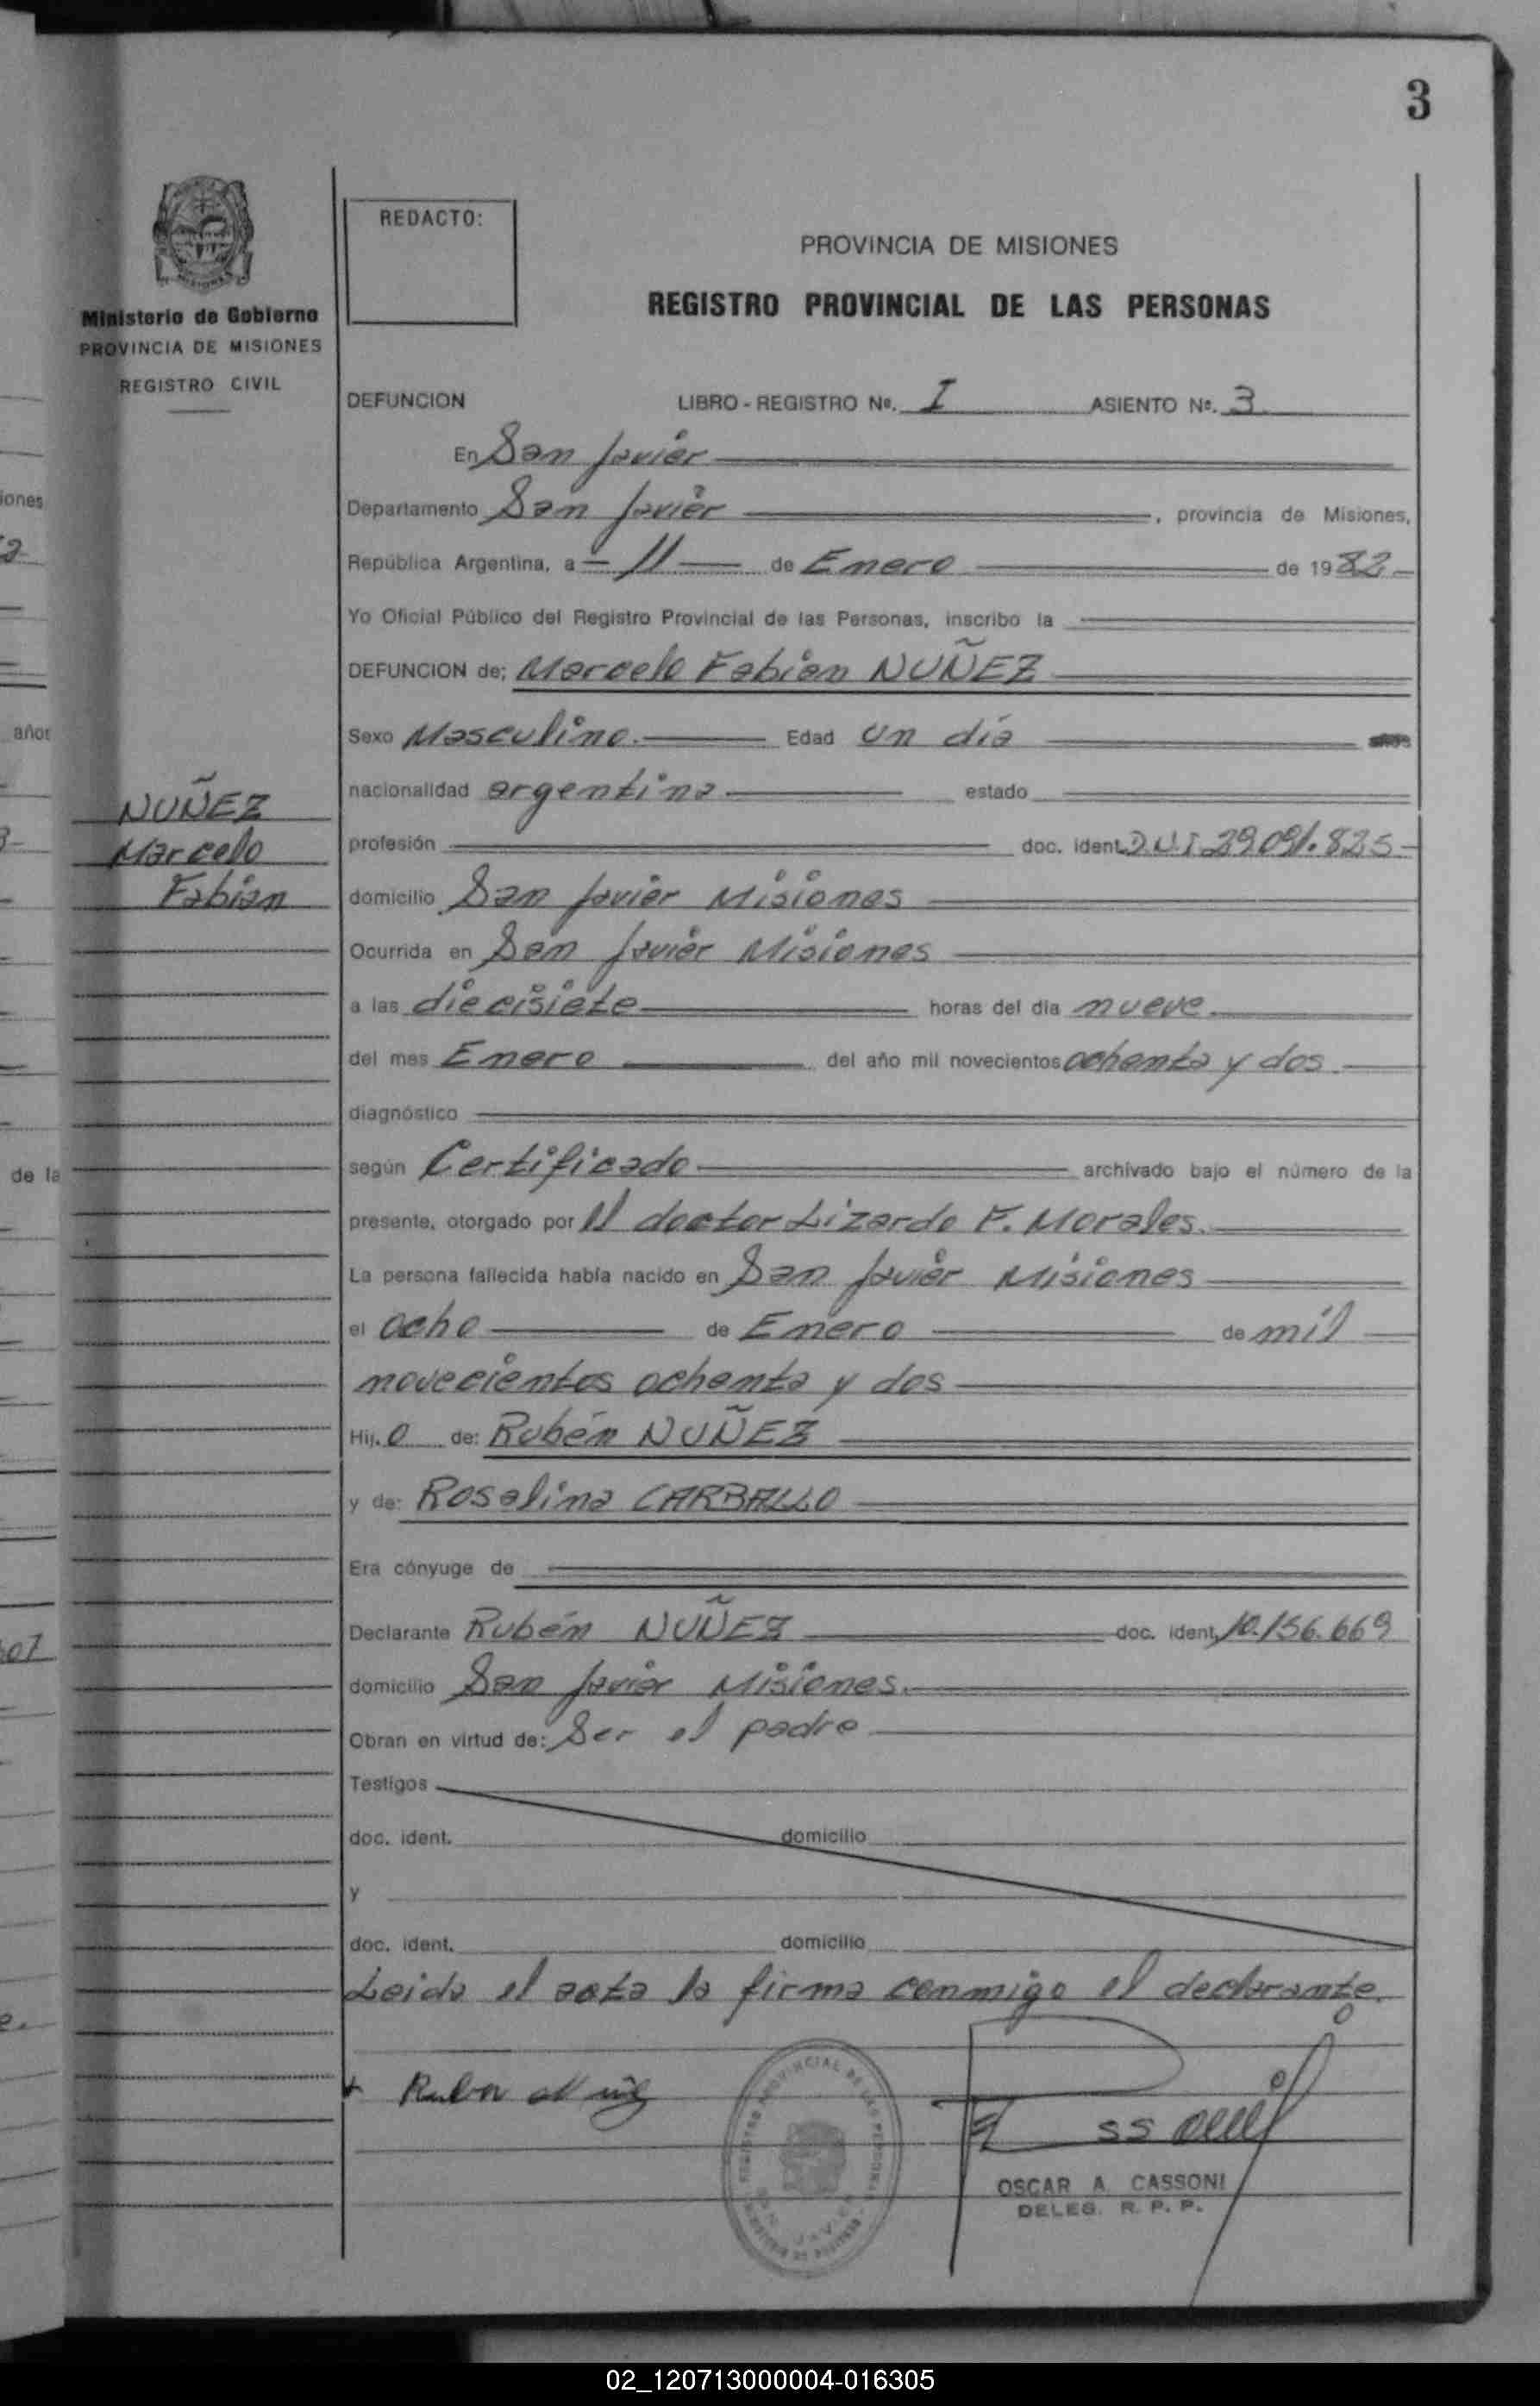 3
REDACTO:
PROVINCIA DE MISIONES
REGISTRO PROVINCIAL DE LAS PERSONAS
Ministerio de Gobierno
PROVINCIA DE MISIONES
REGISTRO CIVIL
DEFUNCION LIBRO - REGISTRO Nº. I ASIENTO Nº. 3
En San Javier
Departamento San Javier, provincia de Misiones,
República Argentina, a 11 de Enero de 1982
Yo Oficial Público del Registro Provincial de las Personas, inscribo la
DEFUNCION de; Marcelo Fabian NUÑEZ
Sexo Masculino. Edad un día
NUÑEZ
Marcelo
Fabian
nacionalidad argentina estado
profesión doc. ident. D.N.I 29.091.825
domicilio San Javier Misiones
Ocurrida en San Javier Misiones
a las diecisiete horas del dia nueve
del mes Enero del año mil novecientos ochenta y dos
diagnóstico
según Certificado archivado bajo el número de la
presente, otorgado por el doctor Lizardo F. Morales.
La persona fallecida había nacido en San Javier Misiones
el ocho de Enero de mil
novecientos ochenta y dos
Hij.o de: Rubén NUÑEZ
y de: Rosalina CARBALLO
Era cónyuge de
Declarante Rubén NUÑEZ doc. ident. 10.156.669
domicilio San Javier Misiones.
Obran en virtud de: Ser el padre
Testigos
doc. ident. domicilio
y
doc. ident. domicilio
Leida el acta la firma conmigo el declarante.
OSCAR A. CASSONI
DELEG. R. P. P.
iones
años
de la
07
02_120713000004-016305